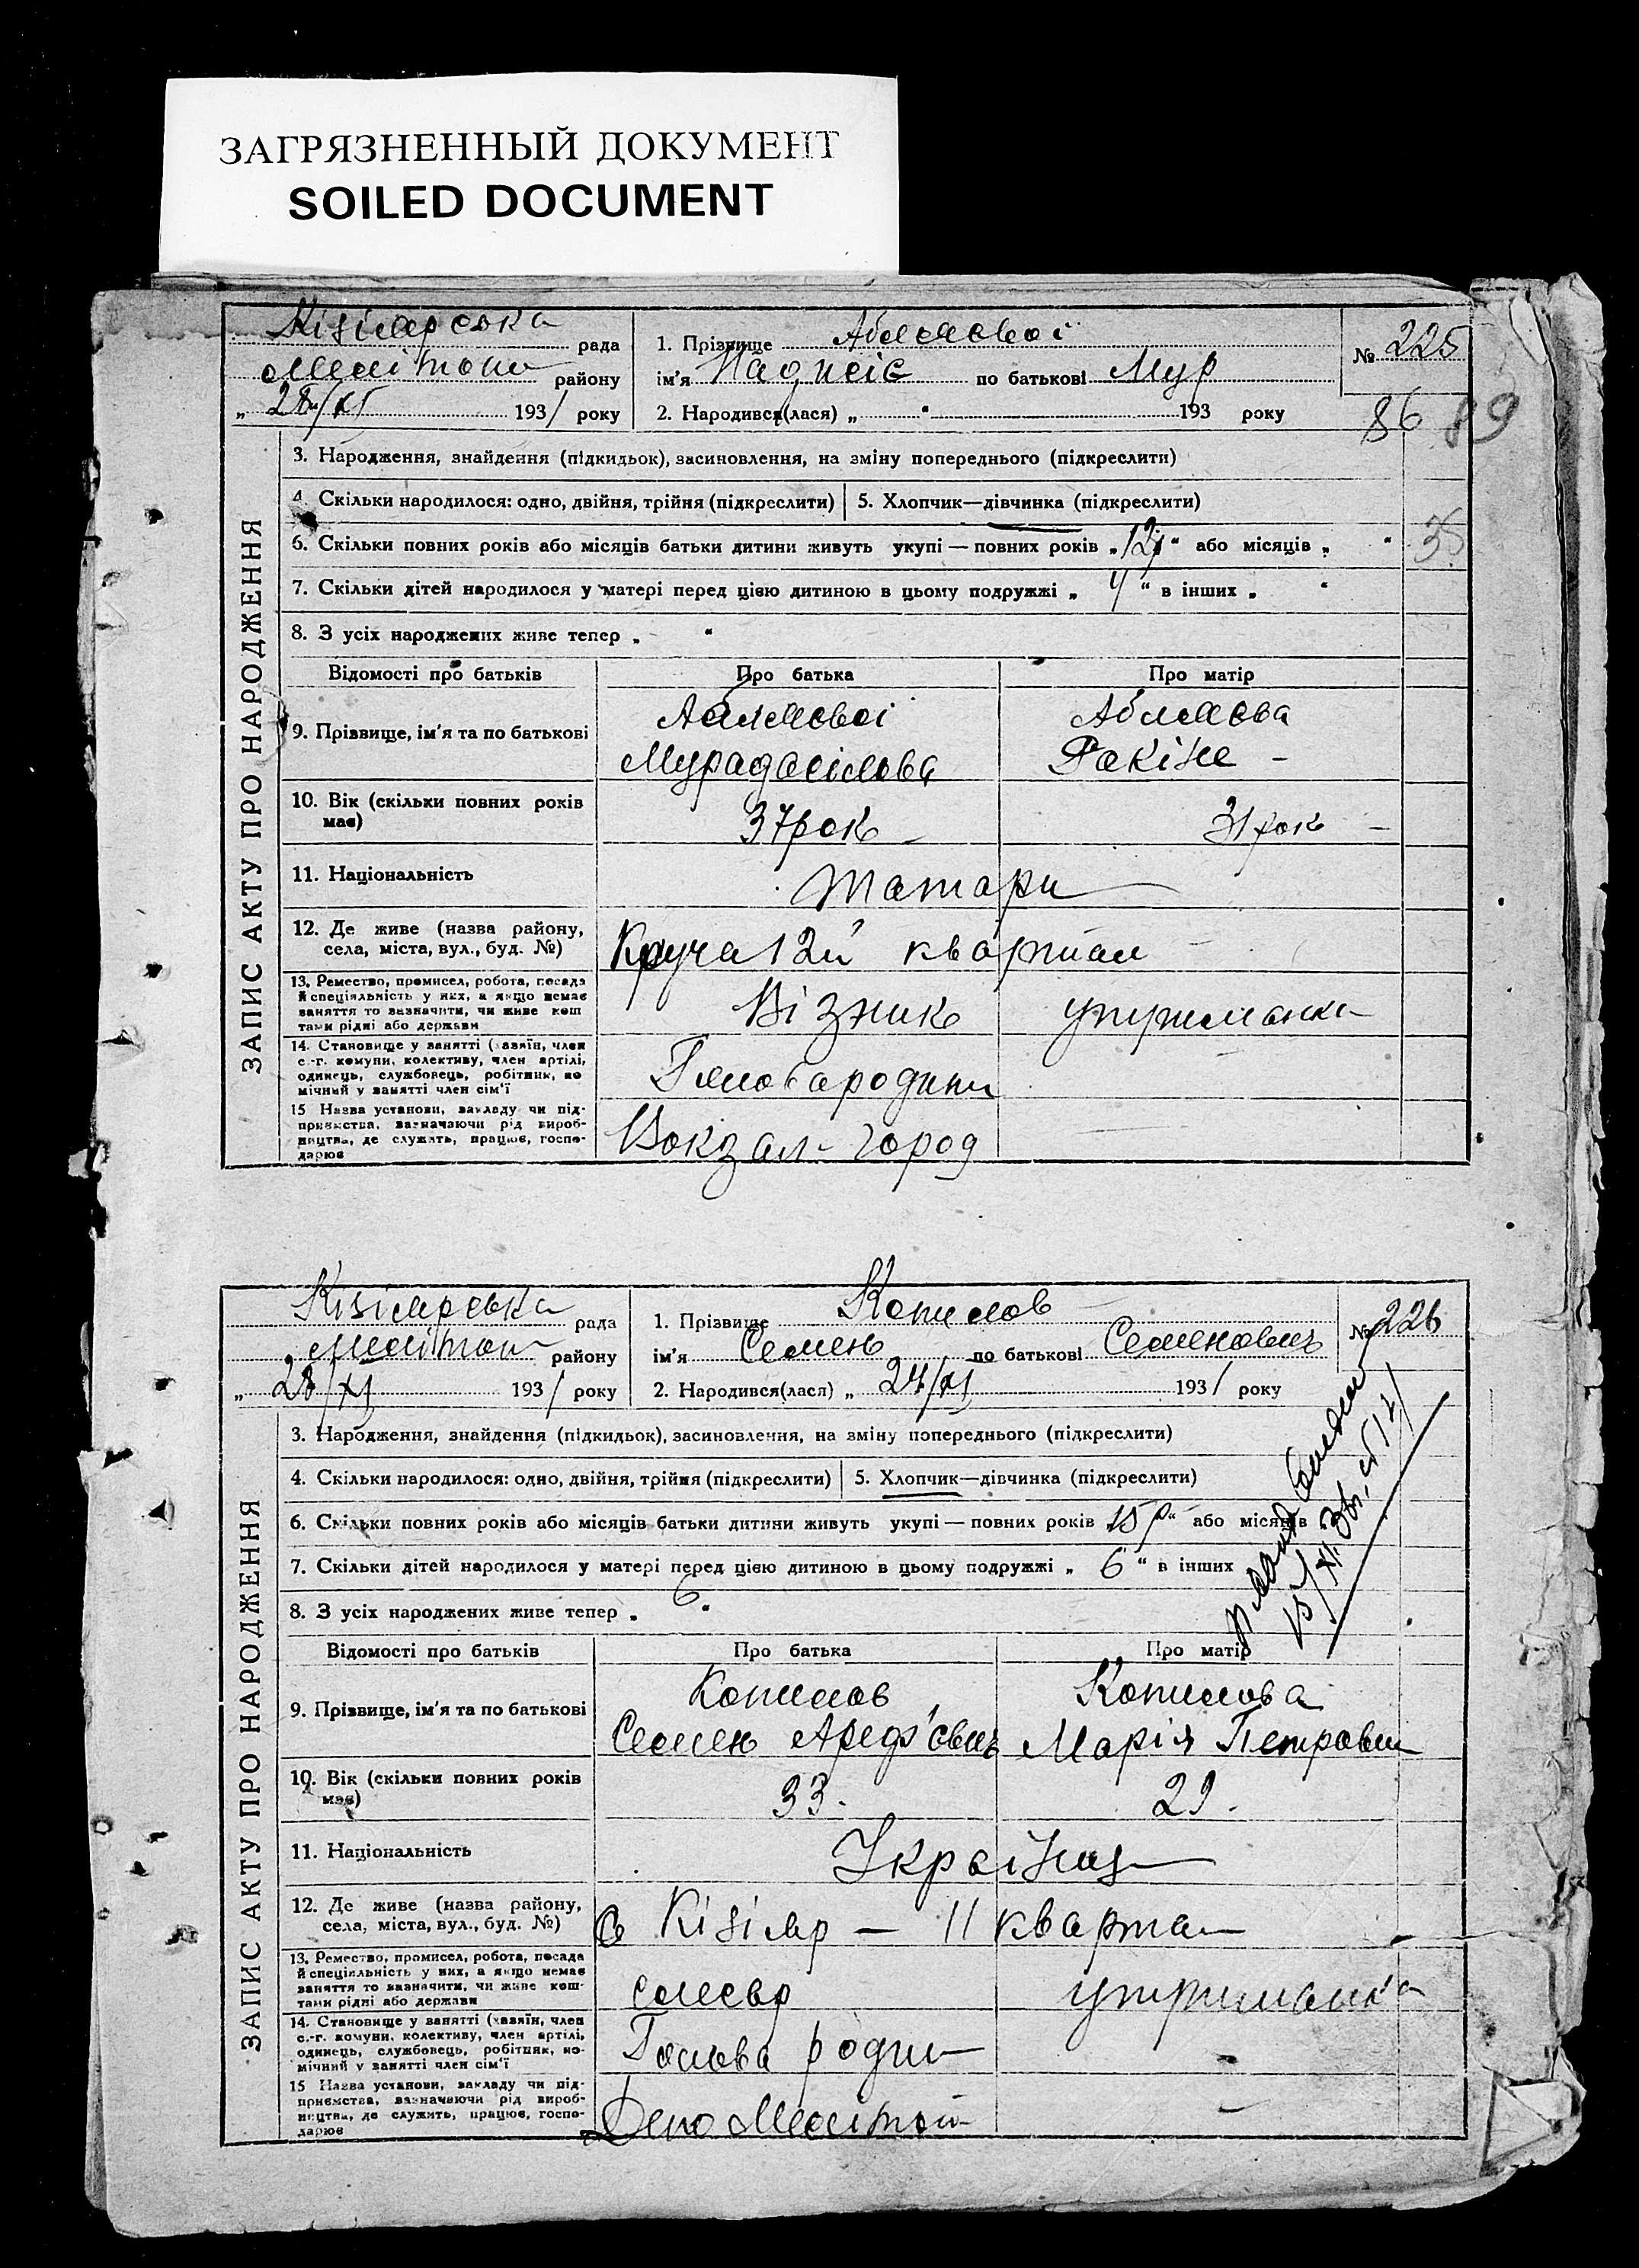 ЗАГРЯЗНЕННЫЙ ДОКУМЕНТ
SOILED DOCUMENT
ЗАПИС АКТУ ПРО НАРОДЖЕННЯ
Кізіярська рада
Мелітоп району
„ 28/XI 1931 року
1. Прізвище
ім'я по батькові Мур
2. Народився(лася) „ “ 193 року
№ 225
86 89
3. Народження, знайдення (підкидьок), засиновлення, на зміну попереднього (підкреслити)
4. Скільки народилося: одно, двійня, трійня (підкреслити) 5. Хлопчик—дівчинка (підкреслити)
6. Скільки повних років або місяців батьки дитини живуть укупі — повних років „12“ або місяців „ “
7. Скільки дітей народилося у матері перед цією дитиною в цьому подружжі „ 4 “ в інших „ “
8. З усіх народжених живе тепер „ “
Відомості про батьків Про батька Про матір
9. Прізвище, ім'я та по батькові
10. Вік (скільки повних років має) 37 рок 31 рок
11. Національність Татари
12. Де живе (назва району, села, міста, вул., буд. №) Круча 12й квартал
13. Ремество, промисел, робота, посада й спеціяльність у них, а якщо немає заняття то зазначити, чи живе коштами рідні або держави Візник утриманка
14. Становище у занятті (хазяїн, член с.-г. комуни, колективу, член артілі, одинець, службовець, робітник, помічний у занятті член сім'ї Голова родини
15 Назва установи, закладу чи підприємства, зазначаючи рід виробництва, де служить, працює, господарює Вокзал-город
ЗАПИС АКТУ ПРО НАРОДЖЕННЯ
Кізіярська рада
Мелітоп району
„ 28/XI 1931 року
1. Прізвище Копилов
ім'я Семен по батькові Семенович
2. Народився(лася) „ 24/XI 1931 року
№ 226
3. Народження, знайдення (підкидьок), засиновлення, на зміну попереднього (підкреслити)
4. Скільки народилося: одно, двійня, трійня (підкреслити) 5. Хлопчик—дівчинка (підкреслити)
6. Скільки повних років або місяців батьки дитини живуть укупі — повних років 15 р“ або місяців
7. Скільки дітей народилося у матері перед цією дитиною в цьому подружжі „ 6 “ в інших
8. З усіх народжених живе тепер „ 6 “
Відомості про батьків Про батька Про матір
9. Прізвище, ім'я та по батькові Копилов Копилова
Семен Марія Петровн
10. Вік (скільки повних років має) 33. 29.
11. Національність Українц
12. Де живе (назва району, села, міста, вул., буд. №) С Кізіяр — 11 квартал
13. Ремество, промисел, робота, посада й спеціяльність у них, а якщо немає заняття то зазначити, чи живе коштами рідні або держави слюсар утриманка
14. Становище у занятті (хазяїн, член с.-г. комуни, колективу, член артілі, одинець, службовець, робітник, помічний у занятті член сім'ї Голова родин
15 Назва установи, закладу чи підприємства, зазначаючи рід виробництва, де служить, працює, господарює Депо Мелітоп